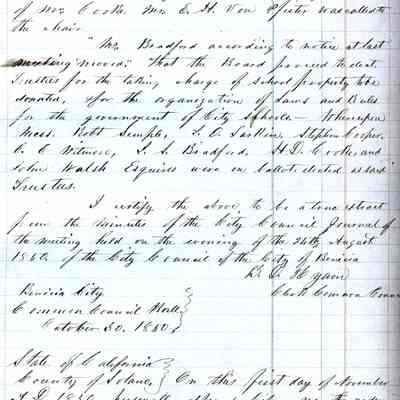 of Mr Cooke Mr E. H. Von Pfister was called to
the chair
"Mr. Bradford according to notice at last
meeting moved; That the Board proceed to elect
Trustees for the taking charge of School property to be
donated, & for the organization of Laws and Rules
for the government of City Schools — Whereupon
Mess. Robt Semple, Stephen Cooper,
Bradford, H. D. Cooke, and
John Walsh Esquires were on ballot elected as said
Trustees.
I certify the above to be a true extract
from the minutes of the City Council Journal of
the meeting held on the evening of the 26th August
1850, of the City Council of the City of Benicia
Clerk Common
Benicia City
Common Council Hall
October 30. 1850
State of California
County of Solano, On this first day of November
A.D. 1850